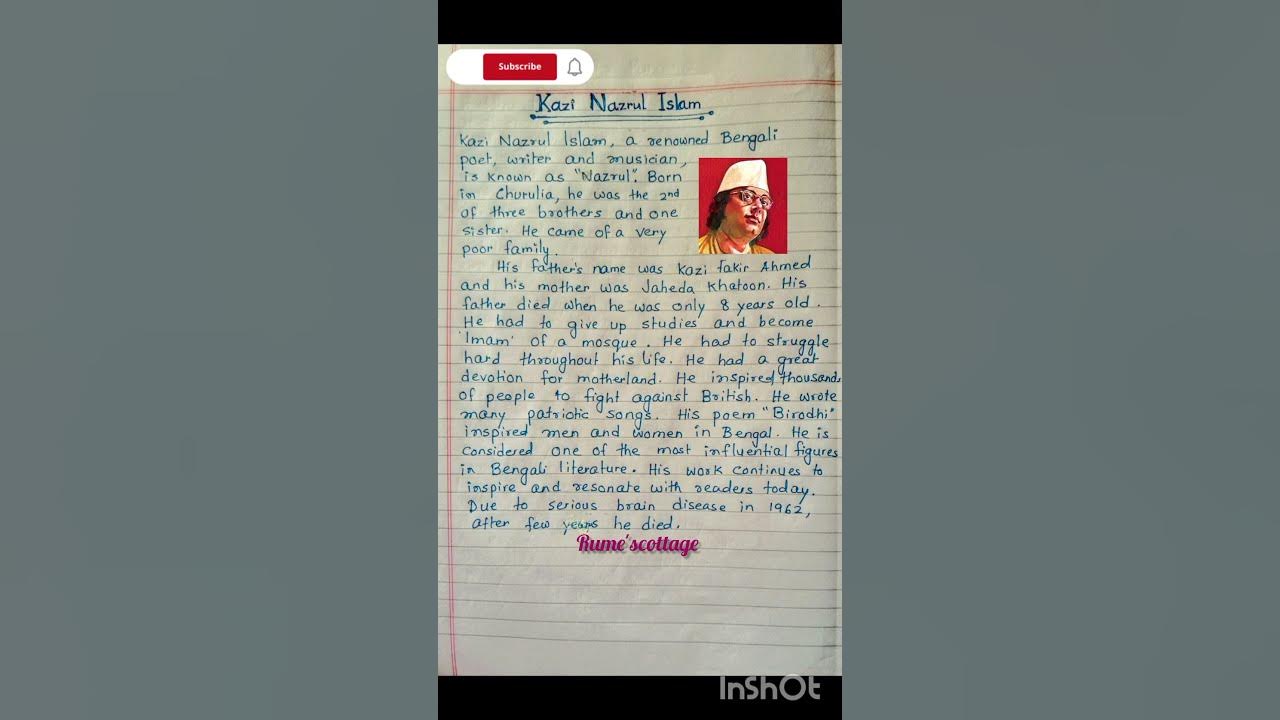 Subscribe
Kazi Nazrul Islam
Kazi Nazrul Islam, a renowned Bengali
poet, writer and musician,
is known as "Nazrul". Born
in Churulia, he was the 2nd
of three brothers and one
sister. He came of a very
poor family.
His father's name was Kazi fakir Ahmed
and his mother was Jaheda Khatoon. His
father died when he was only 8 years old.
He had to give up studies and become
'Imam' of a mosque. He had to struggle
hard throughout his life. He had a great
devotion for motherland. He inspired thousands
of people to fight against British. He wrote
many patriotic songs. His poem "Birodhi"
inspired men and women in Bengal. He is
considered one of the most influential figures
in Bengali literature. His work continues to
inspire and resonate with readers today.
Due to serious brain disease in 1962,
after few years he died.
Rume'scottage
InShOt